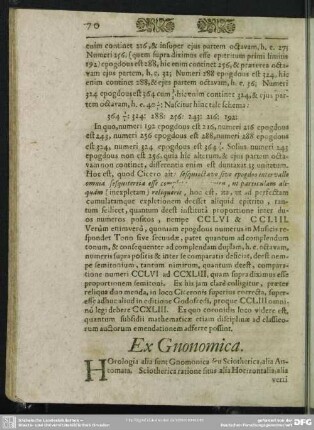 70
enim continet 216, & insuper ejus partem octavam, h. e. 27;
Numeri 256. (quem supra diximus esse epitritum primi limitis
192) epogdous est 288, hic enim continet 256, & præterea octa-
vam ejus partem, h. e. 32; Numeri 288 epogdous est 324, hic
enim continet 288, & ejus partem octavam, h. e. 36, Numeri
324 epogdous est 364 cum hic enim continet 324, & ejus par-
tem octavam, h. e. 40 Nascitur hinc tale schema:
364 324: 288: 256: 243: 216: 192:
In quo, numeri 192 epogdous est 216, numeri 216 epogdous
est 243, numeri 256 epogdous est 288, numeri 288 epogdous
est 324, numeri 324 epogdous est 364 Solius numeri 243
epogdous non est 256. quia hic alterum, & ejus partem octa-
vam non continet, differentia enim est duntaxat 13 unitatum.
Hoc est, quod Cicero ait: sesquioctavo sive epogdoo intervallo
omnia sesquitertia esse ut particulam ali-
quam (inexpletam) relinqueret, hoc est, ut ad perfectam
cumulatamque expletionem deesset aliquid epitrito, tan-
tum scilicet, quantum deest istiusmodi proportione inter du-
os numeros positos, nempe CCLVI & CCXLIII.
Verùm enimverò, quoniam epogdous numerus in Musicis re-
spondet Tono sive secundæ, patet quantum ad complendum
tonum, & consequenter ad complendum duplam, h. e. octavam,
numeris supra positis & inter se comparatis deficiat, deest nem-
pe semitonium, tantum nimirum, quantum deest, compara-
tione numeri CCLVI ad CCXLIII, quam supra diximus esse
proportionem semitoni. Ex his jam clarè colligitur, præter
reliqua duo menda, in loco Ciceronis superius everecta, super-
esse adhuc aliud in editione Godofredi, proque CCLIII omni-
nò legi debere CCXLIII. Ex quo corollii loco videre est,
quantum subsidii mathematicæ etiam disciplinæ ad classico-
rum auctorum emendationem adferre possint.
Ex Gnomonica.
HOrologia alia sunt Gnomonica seu Sciotherica, alia Au-
tomata. Sciotherica ratione situs alia Horizontalia, alia
verti